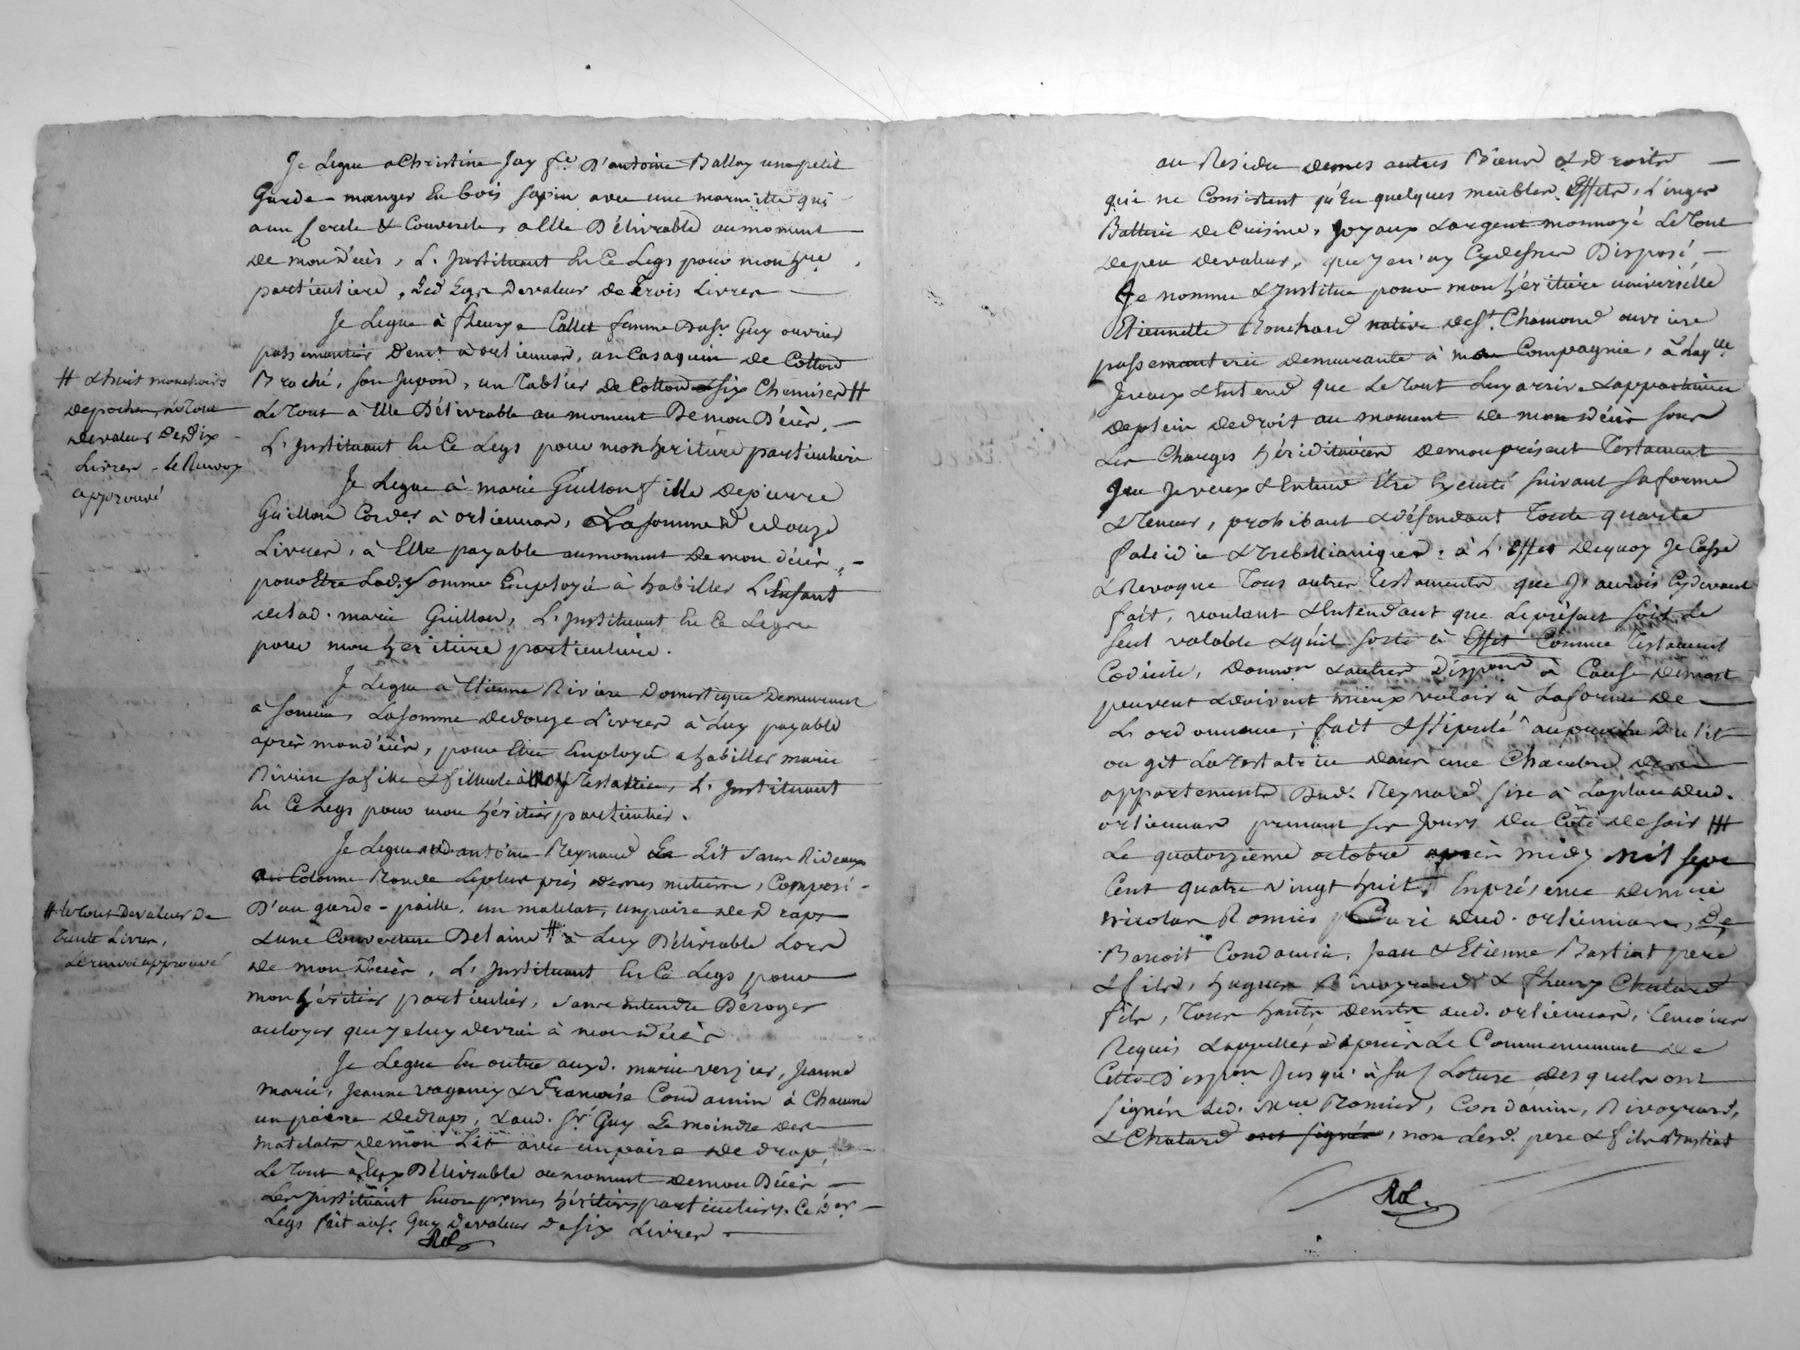 Je Legue a Christine Jay fe. D'antoine Ballay un petit
Garde-manger En bois sapin avec une marmitte qui
a un Cercle & Couvercle, a Elle Délivrable au moment
de mon décès, L'Instituant En Ce Legs pour mon hre
particuliere, Led Legs De valeur de Trois Livres
Je Legue à fleurye Callet femme Du Sr. Guy ouvrier
passementier Demt. a ortiennas, un Casaquin de Cotton
Broché, son Jupon, un Tablier de Cotton & six Chemises #
Le Tout à Elle Délivrable au moment De mon Décès,
L'Instituant En Ce Legs pour mon heritiere particuliere
# & huit mouchoirs
de poches, le Tout
de valeur De Dix
Livres - le Renvoy
approuvé
Je Legue à marie Guillon fille de pierre
Guillon Corder à ortiennas, La somme De douze
Livres, à Elle payable au moment De mon décès,
pour Etre Lad. Somme Employé à habiller L'Enfant
de lad. marie Guillon, L'Instituant En Ce Legs
pour mon héritiere particuliere.
Je Legue à Etienne Riviere Domestique Demeurant
a La somme de douze Livres à Luy payable
après mon décès, pour Etre Employée a habiller marie
Riviere sa fille & filleule à moy Testatrice, L'Instituant
En Ce Legs pour mon héritier particulier.
Je Legue aud antoine Reynaud Le Lit sans Rideaux
Colonne Ronde Le plus près de mes métiers, Composé
D'un garde-paille, un matelat, un paire de draps
& une Couverture De Laine # à Luy Délivrable Lors
de mon Décès, L'Instituant En Ce Legs pour
mon héritier particulier, sans Entendre Déroger
au loyer que je luy devrai à mon Décès
# le tout De valeur De
Trente Livres,
Le renvoi approuvé
Je Legue En outre auxd. marie verzier, Jeanne
marie, Jeanne vaganey & Francoise Condamin à Chacune
un paire de draps, & aud. Sr Guy Le moindre des
matelats de mon Lit avec un paire de draps,
Le Tout à Eux Délivrable au moment de mon Décès
Les Instituant Encore pr mes héritiers particuliers. Ce Der.
Legs fait aud Sr. Guy De valeur De six Livres
RoL
au Résidu de mes autres Biens & Droits
qui ne Consistent qu'En quelques meubles, Effets, Linges
Batterie de Cuisine, Joyaux & argent monnoyé Le Tout
de peu de valeur, que je n'ay Cy dessus Disposé,
Je nomme & Institue pour mon héritiere universelle
Etiennette Bouchard native de St. Chamond ouvriere
passementiere demeurante à ma Compagnie, à Laqlle
Je veux & Entend que Le Tout Luy arrive & appartienne
de plein de droit au moment de mon décès sous
Les Charges héréditaires de mon présent Testament
que Je veux & Entend Etre Exécuté suivant sa forme
& Teneur, prohibant & défendant Toute quarte
falcidie & Trebellianique. à L'Effet de quoy Je Casse
& Revoque Tous autres Testaments que J'aurois Cy devant
fait, voulant & Entendant que Le présent soit Le
seul valable & qu'il sorte à Effet Comme Testament
Codicile, Donnon & autres Dispons à Cause De mort
peuvent & doivent mieux valoir à La forme de
L'ordonnance; fait & stipulé au du Lit
ou git La Testatrice dans une Chambre de ses
appartements Dud. Reynaud sise à La place dud.
ortiennas prenant ses Jours du Coté de soir #
Le quatorzieme octobre après midy mil sept
Cent quatre vingt huit, En présence de mre
nicolas Romier Curé dud. ortiennas, de
Benoit Condamin, Jean & Etienne Bastiat père
& fils, hugues Rivoyrard & fleury Chatard
fils, Tous hants dudit aud. ortiennas, témoins
Requis & appellés depuis Le Commencement de
Cette Dispon Jusqu'à sa Cloture desquels ont
signés Led. mre Romier, Condamin, Rivoyrard,
& Chatard ont signés, non Lesd. pere & fils Bastiat
RoL